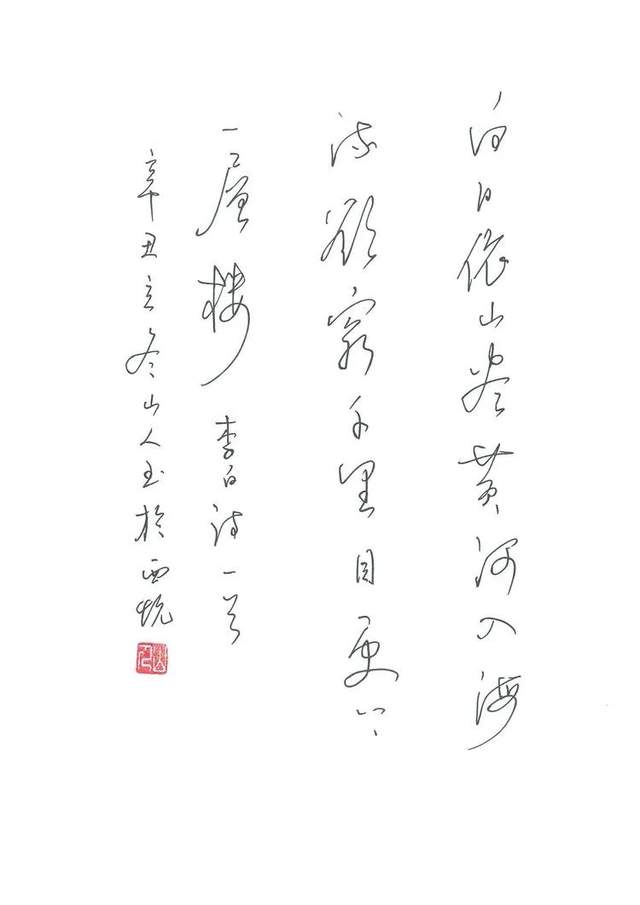 白日依山尽黄河入海
流欲穷千里目更上
一层楼 李白诗一首
辛丑立冬山人书于西坑
山人